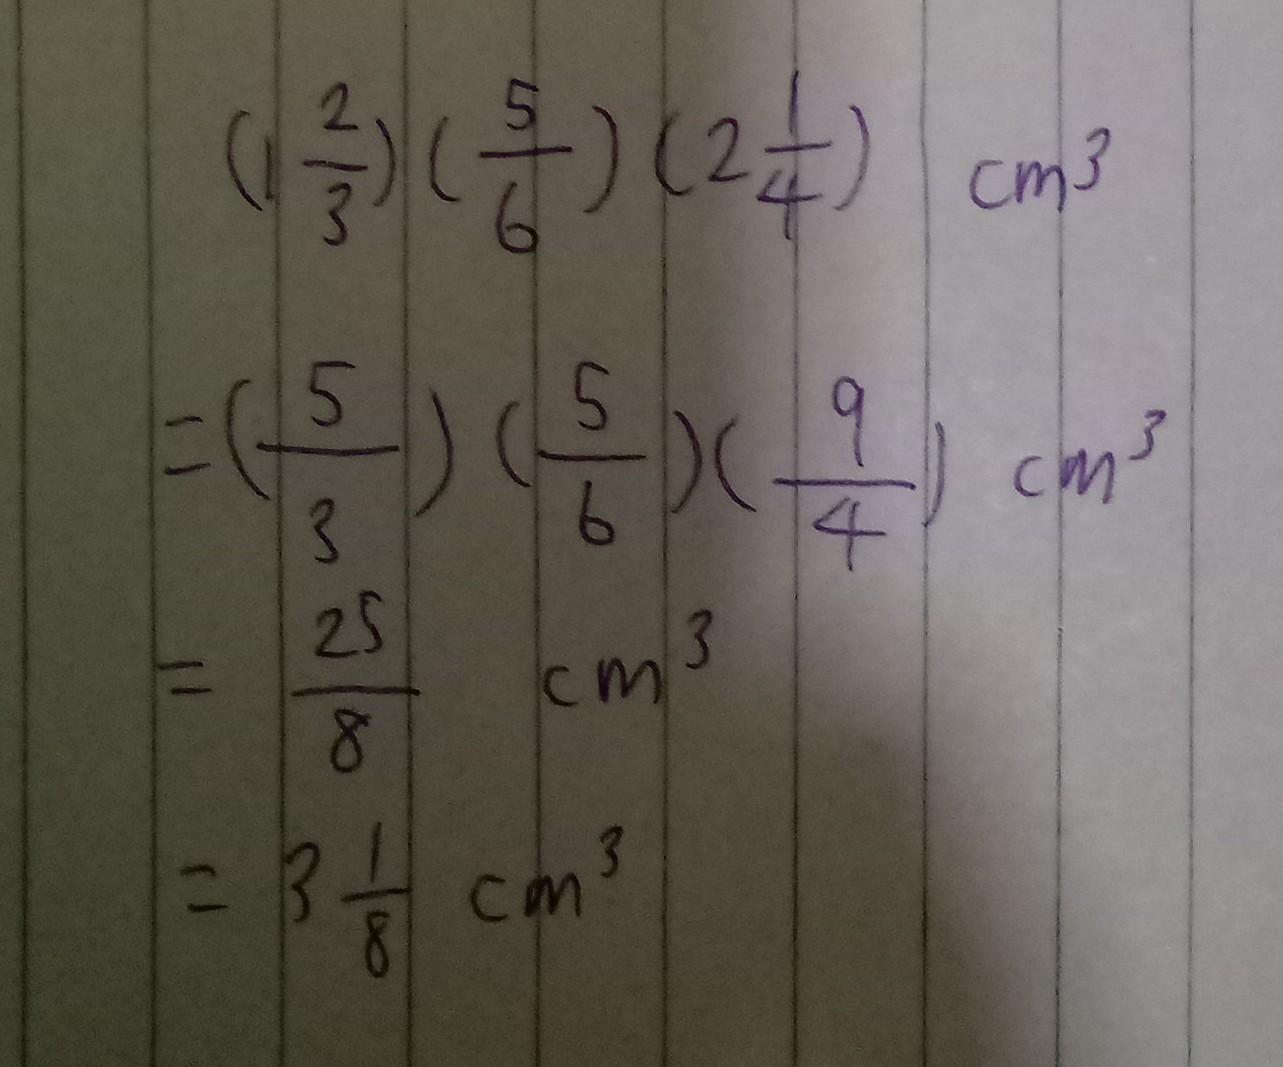 (1 2/3)(5/6)(2 1/4) cm³
=(5/3)(5/6)(9/4) cm³
= 25/8 cm³
= 3 1/8 cm³